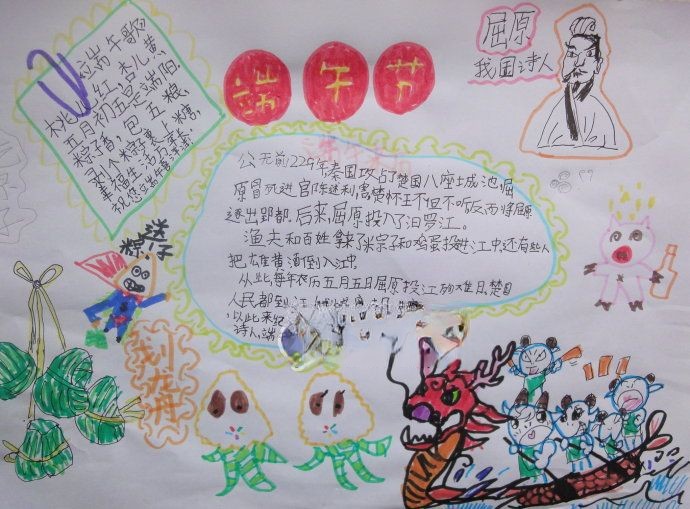 端午歌
桃儿红,杏儿黄,
五月初五是端阳.
粽子香,包五粮,
剥个粽子裹上糖,
幸福生活万年长.
祝您端午节
端午节
屈原
我国诗人
公元前229年秦国攻占了楚国八座城池屈
原冒死进宫陈述利害楚怀王不但不听反而将屈原
逐出郢都.后来,屈原投入了汨罗江.
渔夫和百姓拿了米粽子和鸡蛋投进江中.还有些人
把雄黄酒倒入江中.
从此,每年农历五月五日屈原投江殉难日,楚国
人民都到江
以此来纪
诗人,端
粽子迷
划龙舟